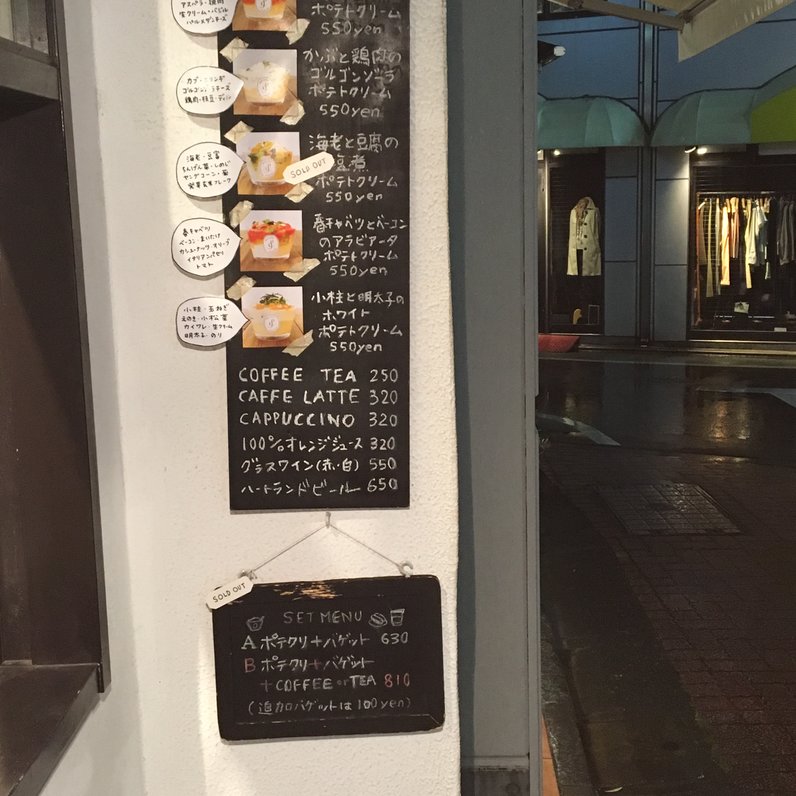 アスパラ・鶏肉
生クリーム・バジル
パルメザンチーズ
ポテトクリーム
550yen
カブ・エリンギ
ゴルゴンゾーラチーズ
鶏肉・枝豆・ディル
かぶと鶏肉の
ゴルゴンゾーラ
ポテトクリーム
550yen
海老・豆腐
ちんげん菜・しめじ
ヤングコーン・葱
海老と豆腐の
豆煮
SOLD OUT
ポテトクリーム
550yen
春キャベツ
ベーコン・まいたけ
カシューナッツ・オリーブ
イタリアンパセリ
トマト
春キャベツとベーコン
のアラビアータ
ポテトクリーム
550yen
小柱・玉ねぎ
えのき・小松菜
カイワレ・生クリーム
明太子・のり
小柱と明太子の
ホワイト
ポテトクリーム
550yen
COFFEE TEA 250
CAFFE LATTE 320
CAPPUCCINO 320
100%オレンジジュース 320
グラスワイン(赤・白) 550
ハートランドビール 650
SOLD OUT
SET MENU
A ポテクリ+バゲット 630
B ポテクリ+バゲット
+COFFEE or TEA 810
(追加バゲットは100yen)